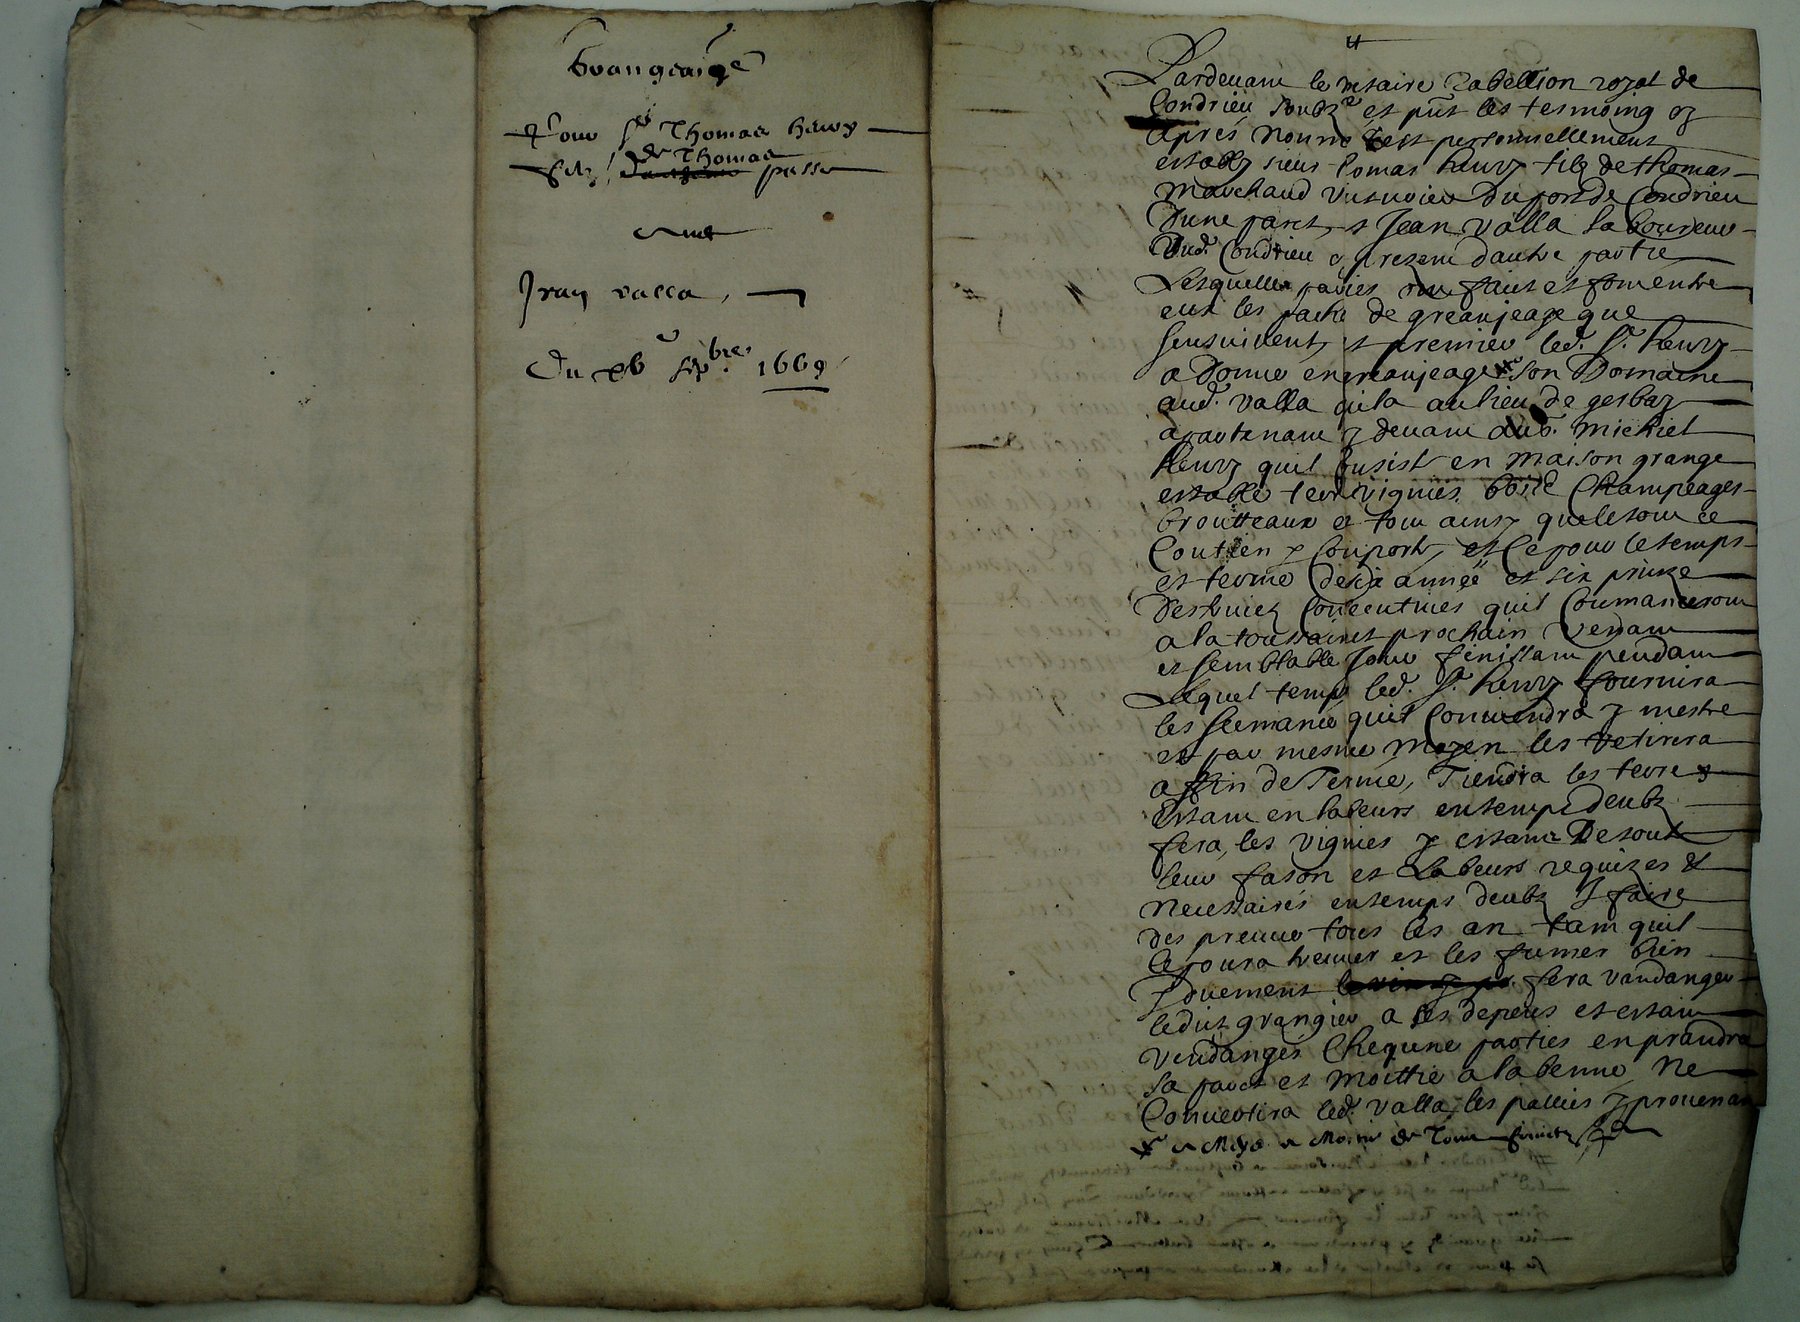 Grangeaige
Pour sr Thomas henry
filz de Thomas passé
avec
Jean valla
Du xv septbre 1669
Pardevant le notaire Tabellion royal de
Condrieu soubzne et pnt les tesmoing cy
apres nommé c'est personnellement
estably sieur tomas henry filz de thomas
marchand voiturier du port de Condrieu
d'une part, et Jean valla laboureur
dud. Condrieu cy present dautre partie
Lesquelles parties ont faict et font entre
eux les pache de greanjeage que
sensuivent, et premier led. sr. henry
a donné en greanjeage son Domaine
aud. valla qu'il a au lieu de gerbay
apartenant cy devant aud. michiel
henry quil consist en maison grange
estable terre vignies bois Champeages
broutteaux et tout ainsy quele tout ce
Contien et Conporte, et Ce pour le temps
et terme de six année et six prinze
Consecutives quil Coumanceront
a la toussainct prochain venant
et semblable Jour finissant pendant
Lequel temps led. sr. henry fournira
les semance quil Conviendra y mestre
et par mesme moyen les retirera
a fin de Terme, Tiendra les terre
Estant en labeurs en temps deubz
fera, les vignies y estant De tout
leur fason et Labeurs requizes et
necessaires en temps deubz y faire
des preuve tous les an tant quil
ce poura treuver et les fumer bien
et duement fera vandanger
ledict grangier a ses depens et estant
vendanges Chequne parties en prandra
sa part et moittie a la benne, Ne
Convertira led. valla, les pallies y provenant
a moitié de Tous fruictz